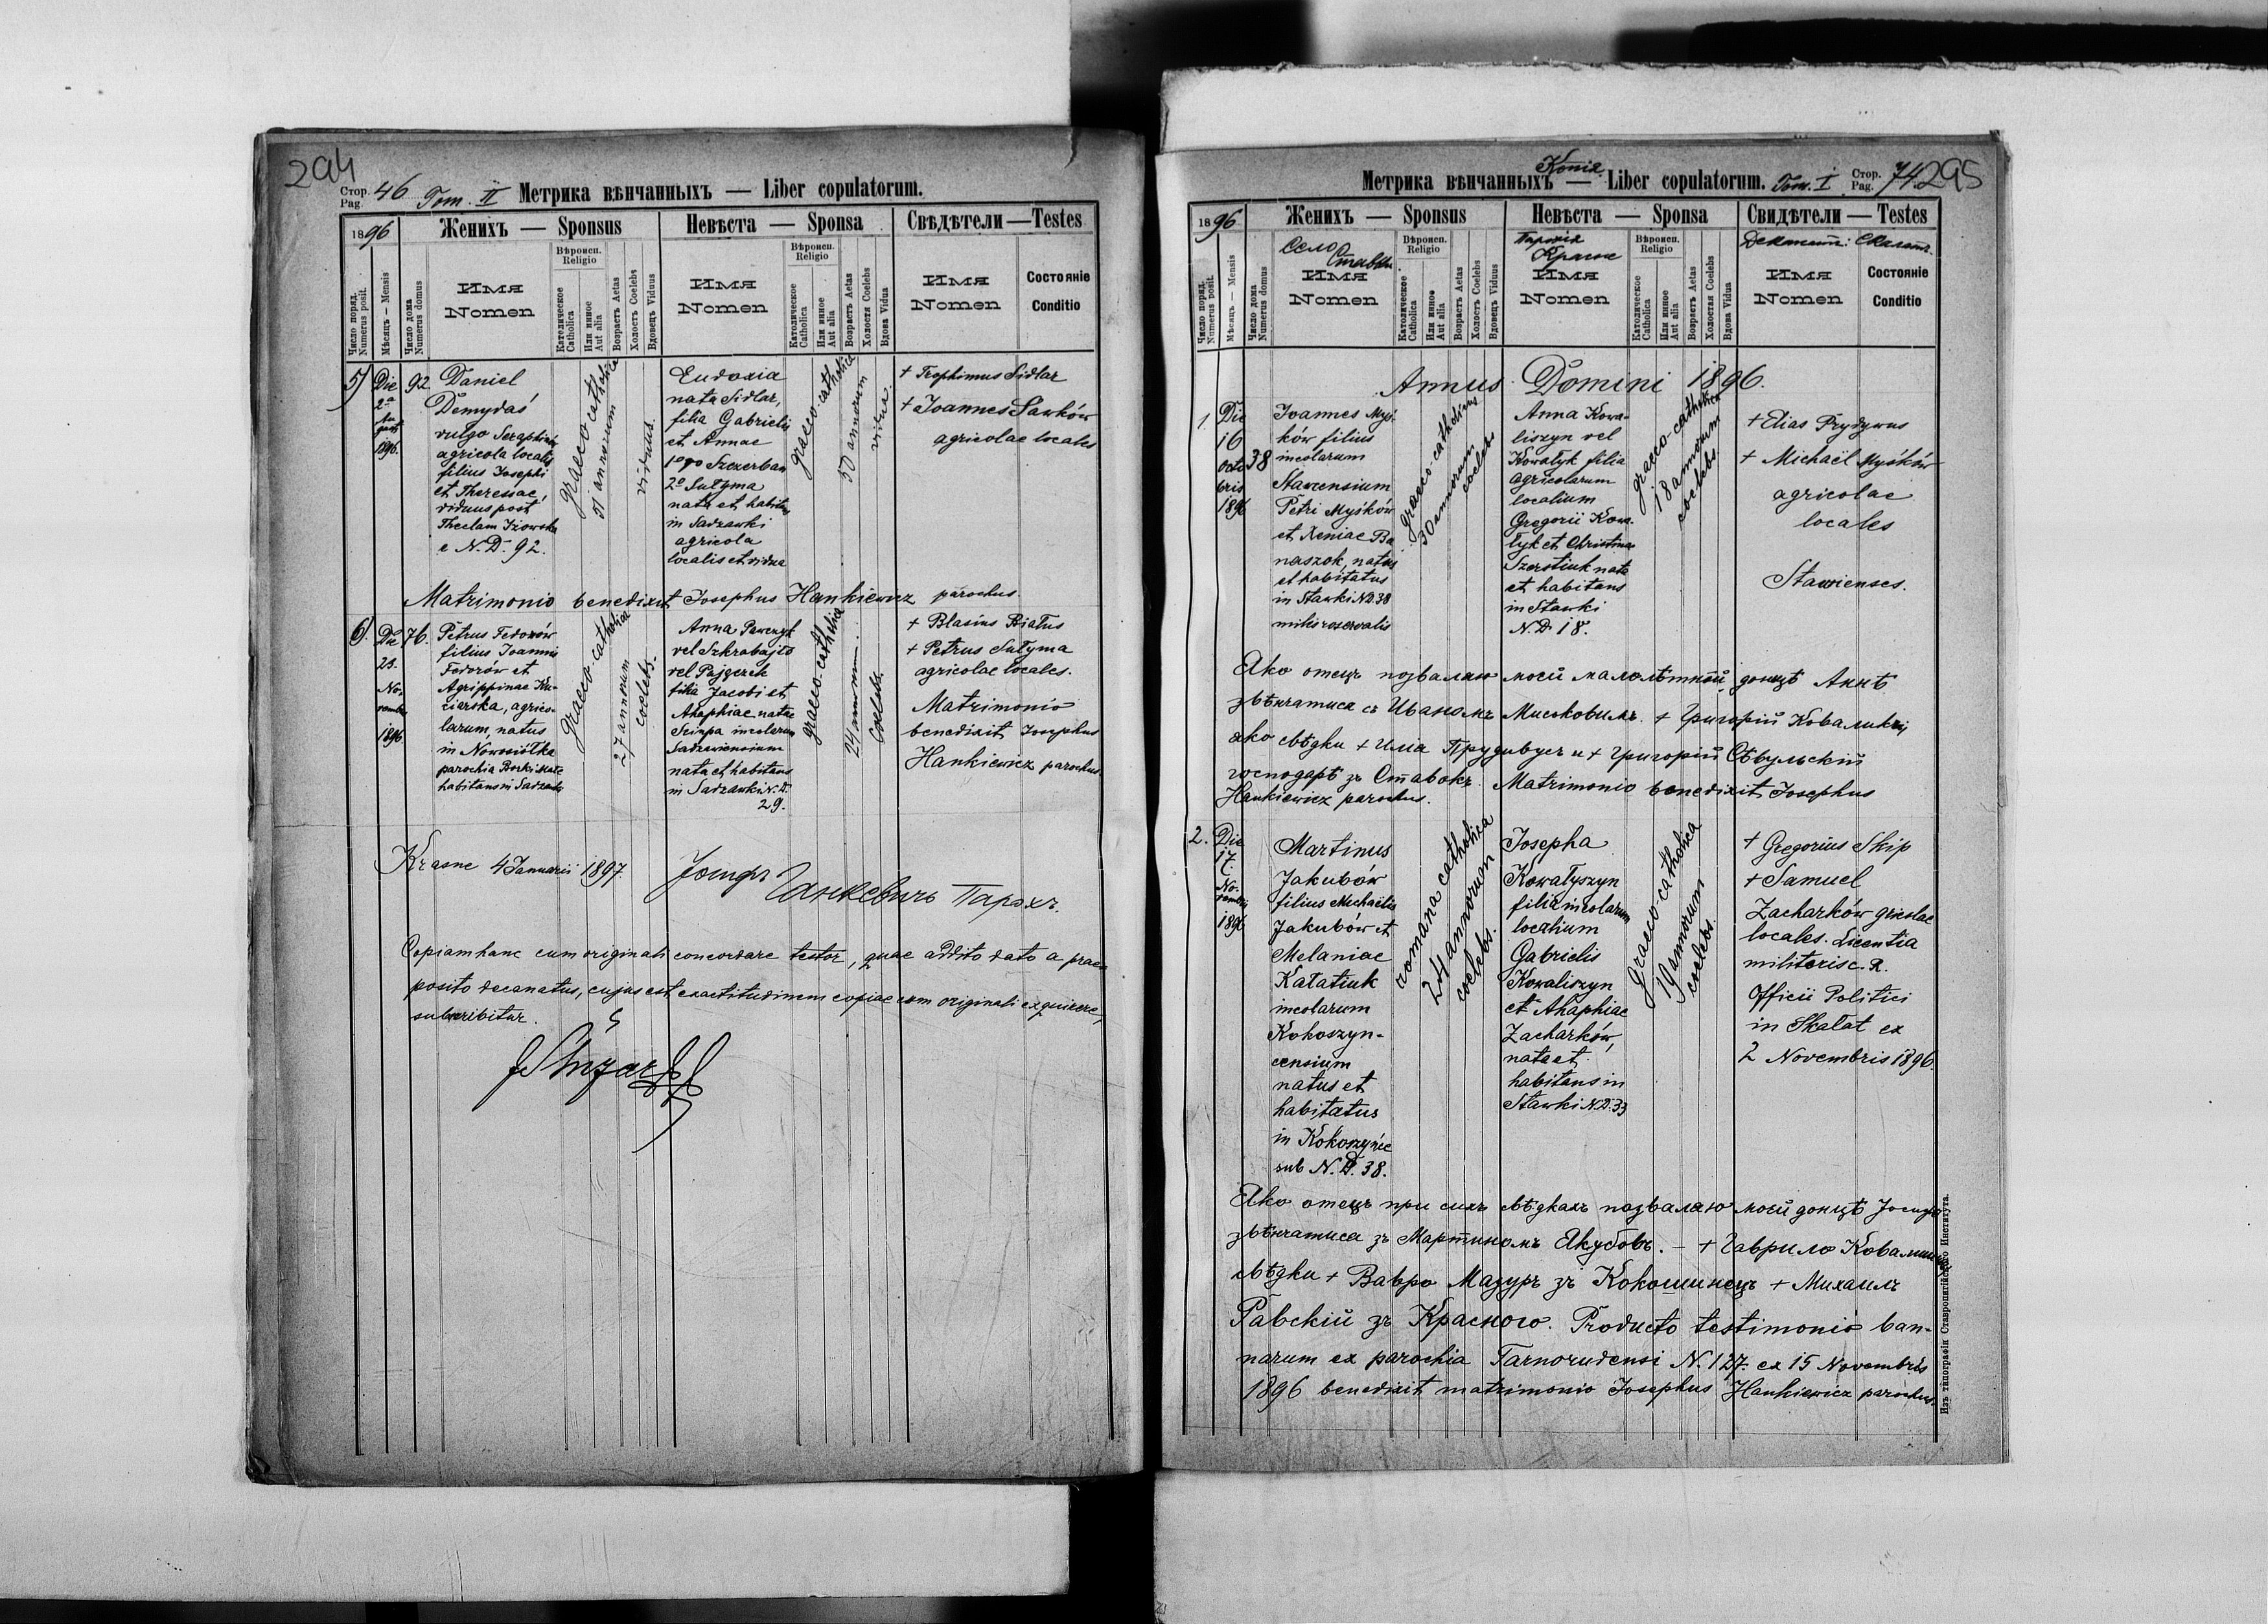 294
Стор. Pag. 46 Tom. II Метрика вѣнчанныхъ — Liber copulatorum.
1896
Женихъ — Sponsus
Невѣста — Sponsa
Свѣдѣтели — Testes
Число поряд. Numerus posit.
Мѣсяць — Mensis
Число дома Numerus domus
Имя
Nomen
Вѣроисп. Religio
Католическое Catholica
Или иное Aut alia
Возрастъ Aetas
Холостъ Coelebs
Вдовецъ Viduus
Имя
Nomen
Вѣроисп. Religio
Католическое Catholica
Или иное Aut alia
Возрастъ Aetas
Холостя Coelebs
Вдова Vidua
Имя
Nomen
Состояніе
Conditio
5/
Die
2ª
Au
gusti
1896.
92
Daniel
Demydaś
vulgo Seraphin
agricola localis
filius Josephi
et Theressae,
viduus post
Theclam
e N.D. 92.
graeco catholica
51 annorum
viduus.
Eudoxia
nata Sidlar,
filia Gabrielis
et Annae
1º vo Szczerban
2º Sułyma
nata et habitans
in Sadzawki
agricola
localis et vidua
graeco catholica
50 annorum
vidua.
+ Trophimus Sidlar
+ Joannes Sawków
agricolae locales
Matrimonio benedixit Josephus Hankiewicz parochus.
6/.
Die
23.
No-
vembris
1896
76.
Petrus Fedorów
filius Joannis
Fedorów et
Agrippinae Ku-
cierska, agrico-
larum, natus
in Nowosiółka
parochia Borki
habitans in Sadzawki
Graeco catholica
27 annorum
coelebs.
Anna Pawczyk
vel Szkrabajło
vel Pajęczek
filia Jacobi et
Ahaphiae natae
incolarum
Sadzawiensium
nata et habitans
in Sadzawki N.D.
29.
graeco-catholica
24 annorum
Coelebs.
+ Blasius Białus
+ Petrus Sułyma
agricolae locales.
Matrimonio
benedixit Josephus
Hankiewicz parochus.
Krasne 4 Januarii 1897.
Іосифъ Ганкевичъ Парохъ.
Copiam hanc cum originali concordare testor, quae addito dato a prae-
posito decanatus, cujus est exactitudinem copiae cum originali exquirere,
subscribitur.
295
Копія
Метрика вѣнчанныхъ — Liber copulatorum. Tom. I Стор. Pag. 74
1896
Женихъ — Sponsus
Невѣста — Sponsa
Свидѣтели — Testes
Село Ставки
Парохія Красне
Деканатъ: Скалатъ.
Число поряд. Numerus posit.
Мѣсяць — Mensis
Число дома Numerus domus
Имя
Nomen
Вѣроисп. Religio
Католическое Catholica
Или иное Aut alia
Возрастъ Aetas
Холостъ Coelebs
Вдовецъ Viduus
Имя
Nomen
Вѣроисп. Religio
Католическое Catholica
Или иное Aut alia
Возрастъ Aetas
Холостая Coelebs
Вдова Vidua
Имя
Nomen
Состояніе
Conditio
Annus Domini 1896.
1.
Die
16
octo
bris
1896
38
Joannes Myś-
ków filius
incolarum
Stawensium
Petri Myśków
et Xeniae Ba
naszok, natus
et habitatus
in Stawki N.D. 38
miles reservalis
graeco-catholicus
30 annorum
coelebs
Anna Kowa-
liszyn vel
Kowałyk filia
agricolarum
localium
Gregorii Kowa-
łyk et Christinae
Szerstiuk nata
et habitans
in Stawki
N.D. 18.
graeco-catholica
18 annorum
coelebs.
+ Elias Prydywus
+ Michaël Myśków
agricolae
locales
Stawienses.
Яко отецъ позваляю моей малолѣтной донцѣ Аннѣ
звѣнчатися съ Иваномъ Миськовимъ. + Григорій Коваликъ
яко свѣдки + Илія Придивусъ и + Григорій Сѣвульскій
господарѣ зъ Ставокъ. Matrimonio benedixit Josephus
Hankiewicz parochus.
2.
Die
17
No-
vembris
1896
Martinus
Jakubów
filius Michaëlis
Jakubów et
Melaniae
Katatiuk
incolarum
Kokoszyn-
censium
natus et
habitatus
in Kokoszyńce
sub N.D. 38.
romana catholica
24 annorum
coelebs.
Josepha
Kowałyszyn
filia incolarum
localium
Gabrielis
Kowaliszyn
et Ahaphiae
Zacharków,
nata et
habitans in
Stawki N.D. 33
Graeco-catholica
19 annorum
coelebs.
+ Gregorius Skip
+ Samuel
Zacharków gricolae
locales. Licentia
militaris c. R.
Officii Politici
in Skałat ex
2 Novembris 1896.
Яко отецъ при сихъ свѣдкахъ позваляю моей донцѣ Іосифѣ
звѣнчатися зъ Мартиномъ Якубовъ. — + Гаврило Ковалишинъ
свѣдки + Вавро Мазуръ зъ Кокошинецъ + Михаилъ
Равскій зъ Красного. Producto testimonio ban-
narum ex parochia Tarnorudensi N. 127. ex 15 Novembris
1896 benedixit matrimonio Josephus Hankiewicz parochus.
Изъ типографіи Ставропигійского Института.